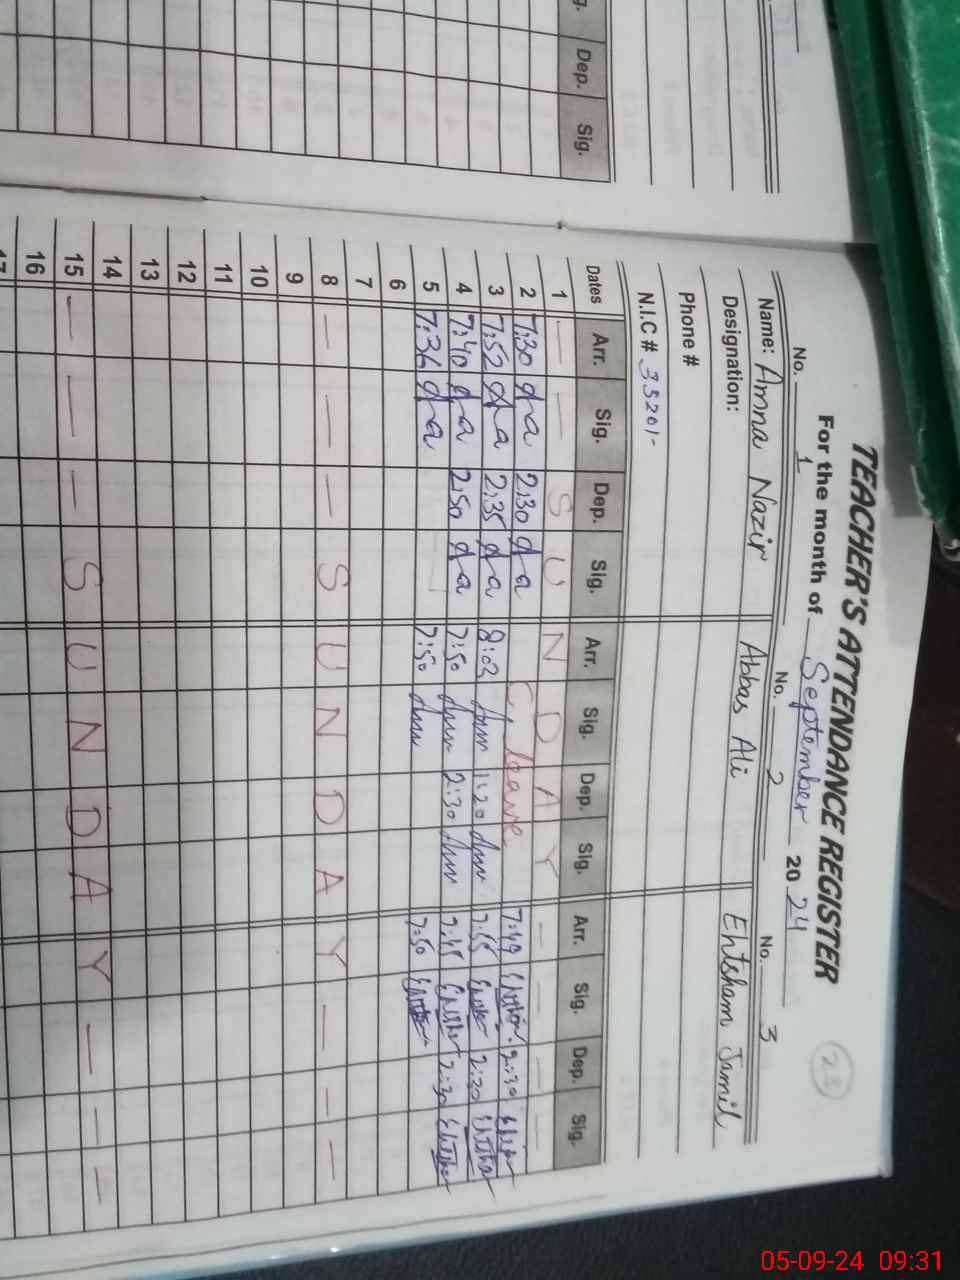 TEACHER'S ATTENDANCE REGISTER
For the month of September 2024
23
No. 1 No. 2 No. 3
Name: Amna Nazir Abbas Ali Ehtsham Jamil
Designation:
Phone #
N.I.C # 35201-
Dates Arr. Sig. Dep. Sig. Arr. Sig. Dep. Sig. Arr. Sig. Dep. Sig.
1 — — S U N D A Y — — — —
2 7:30 2:30 C leave 7:49 2:30
3 7:52 2:35 8:03 1:20 7:55 2:30
4 7:40 2:50 7:50 2:30 7:45 2:30
5 7:36 7:50 7:50
6
7
8 — — — S U N D A Y — — —
9
10
11
12
13
14
15 — — — S U N D A Y — — —
16
17
g. Dep. Sig.
05-09-24 09:31